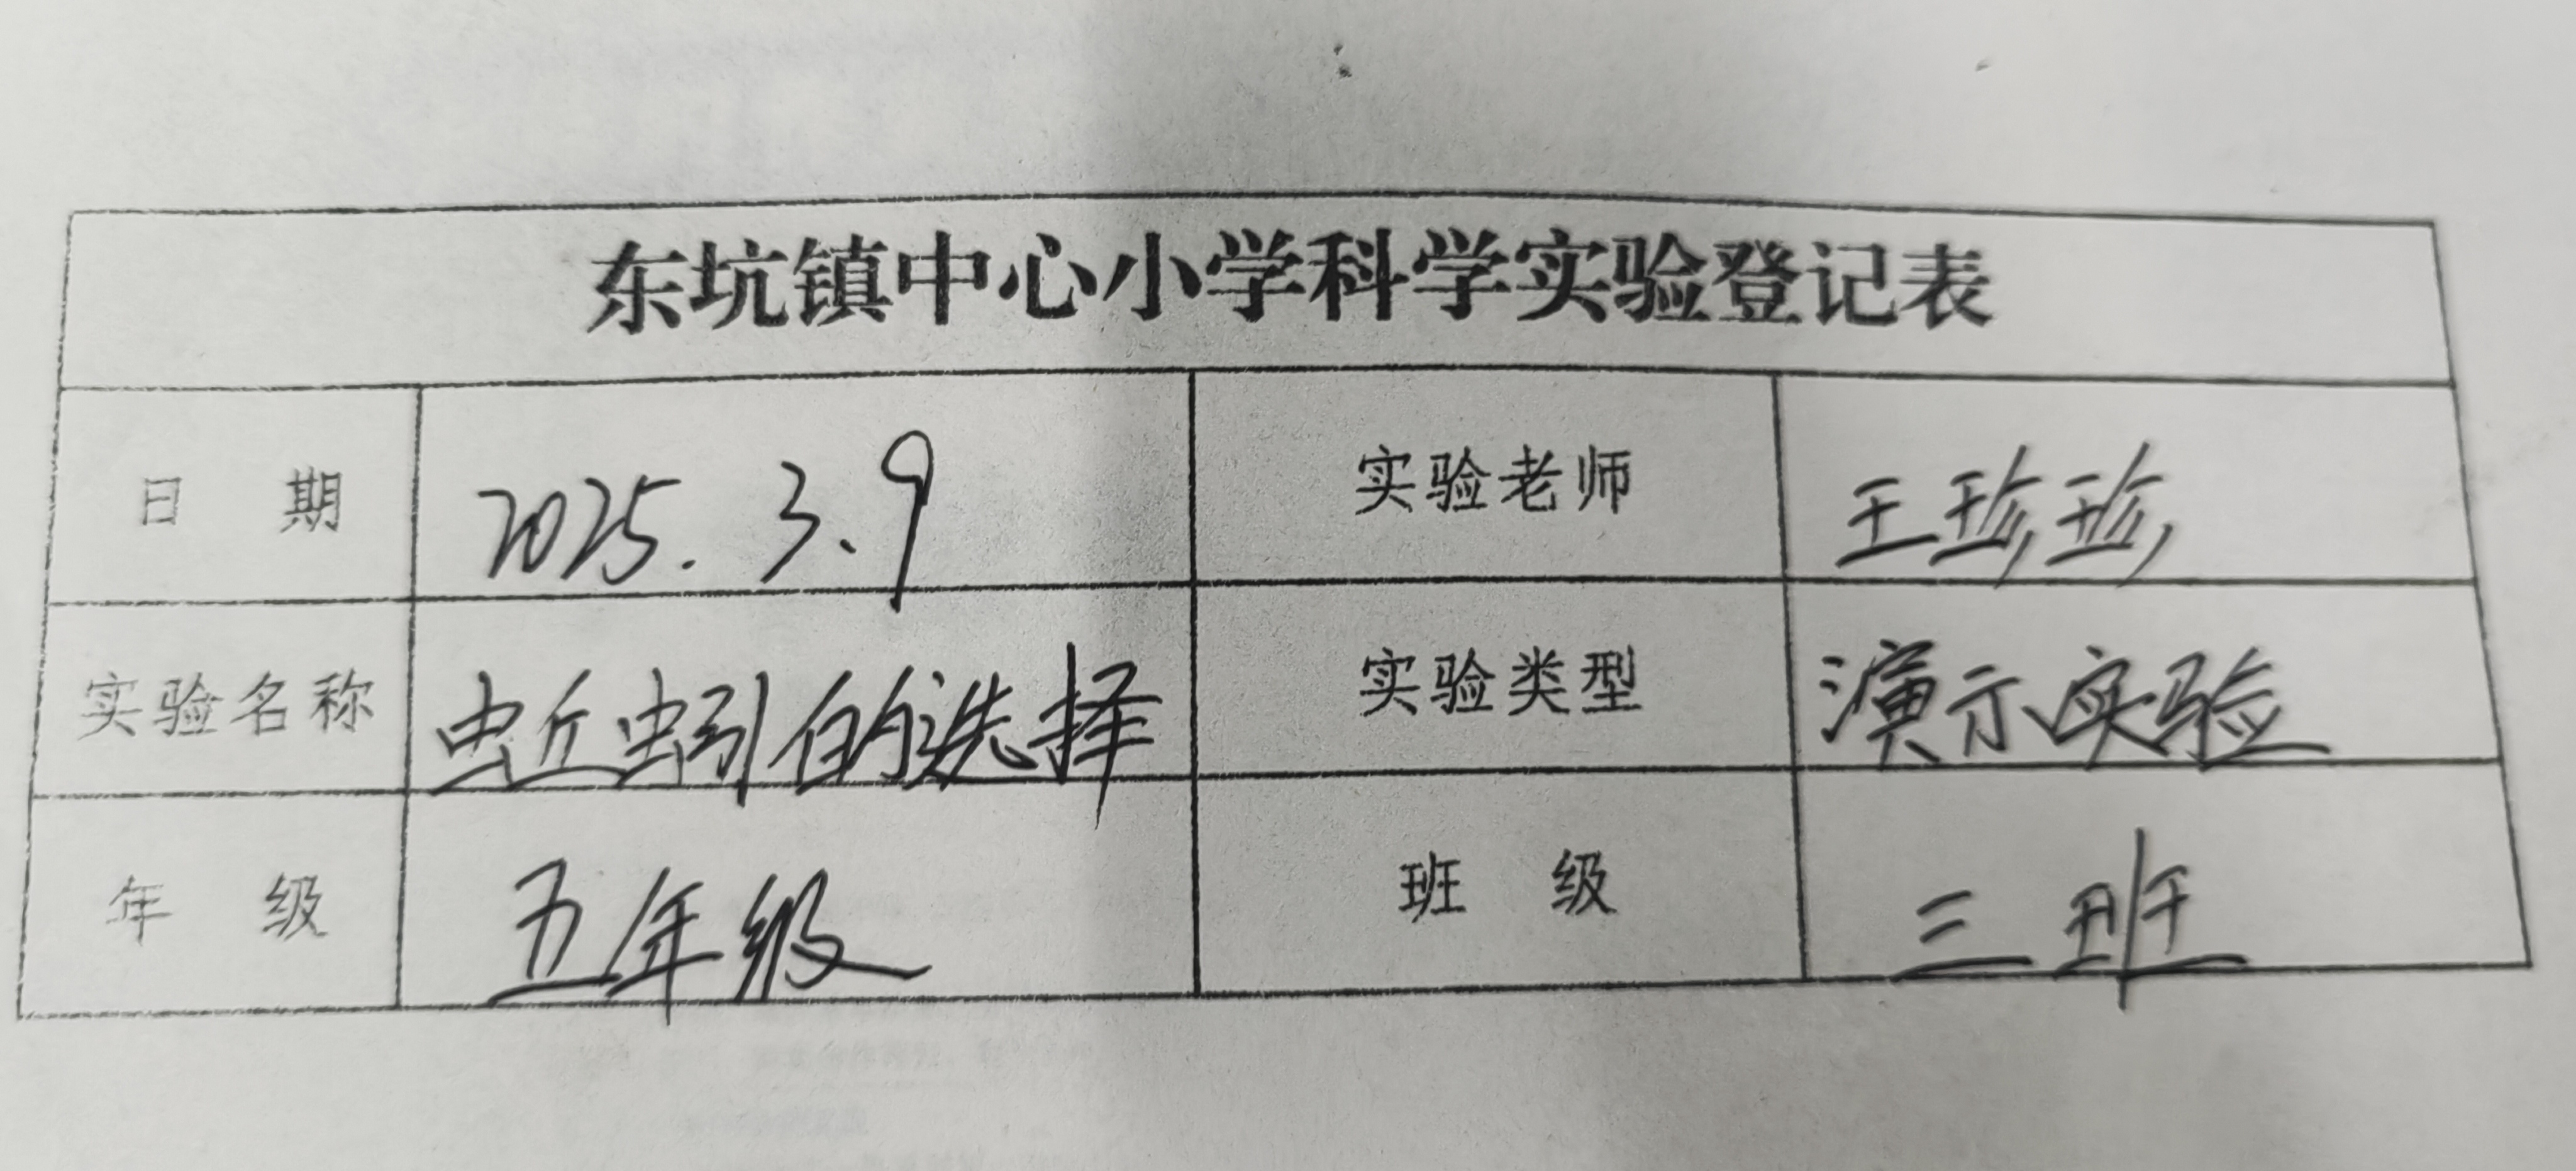 东坑镇中心小学科学实验登记表
日 期 2025.3.9 实验老师 王珍珍
实验名称 蚯蚓的选择 实验类型 演示实验
年 级 五年级 班 级 三班